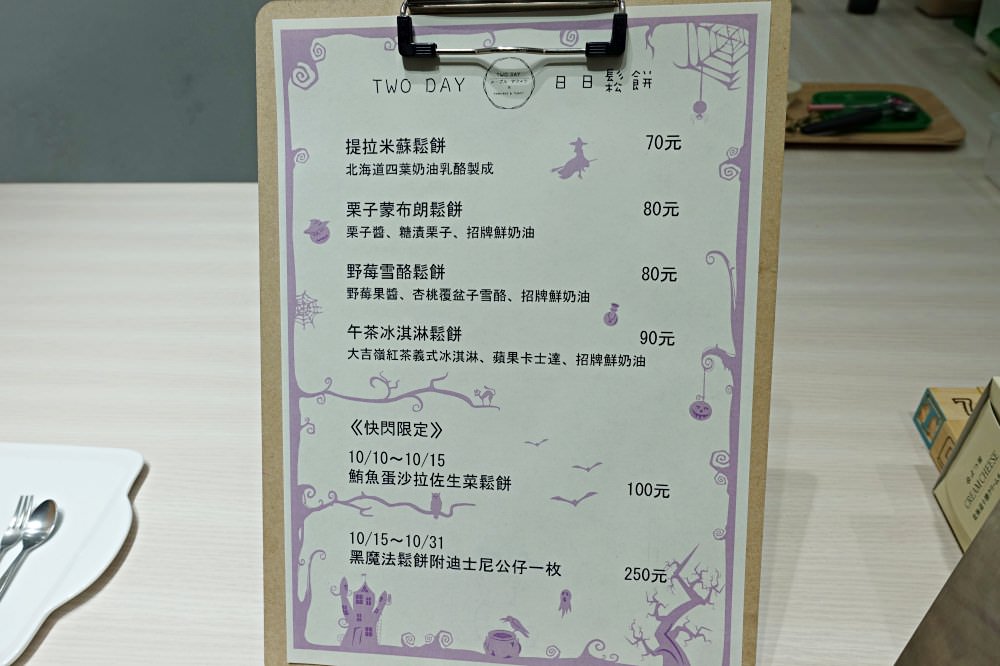 TWO DAY
TWO DAY
日日鬆餅
提拉米蘇鬆餅 70元
北海道四葉奶油乳酪製成
栗子蒙布朗鬆餅 80元
栗子醬、糖漬栗子、招牌鮮奶油
野莓雪酪鬆餅 80元
野莓果醬、杏桃覆盆子雪酪、招牌鮮奶油
午茶冰淇淋鬆餅 90元
大吉嶺紅茶義式冰淇淋、蘋果卡士達、招牌鮮奶油
《快閃限定》
10/10～10/15
鮪魚蛋沙拉佐生菜鬆餅 100元
10/15～10/31
黑魔法鬆餅附迪士尼公仔一枚 250元
CREAM CHEESE